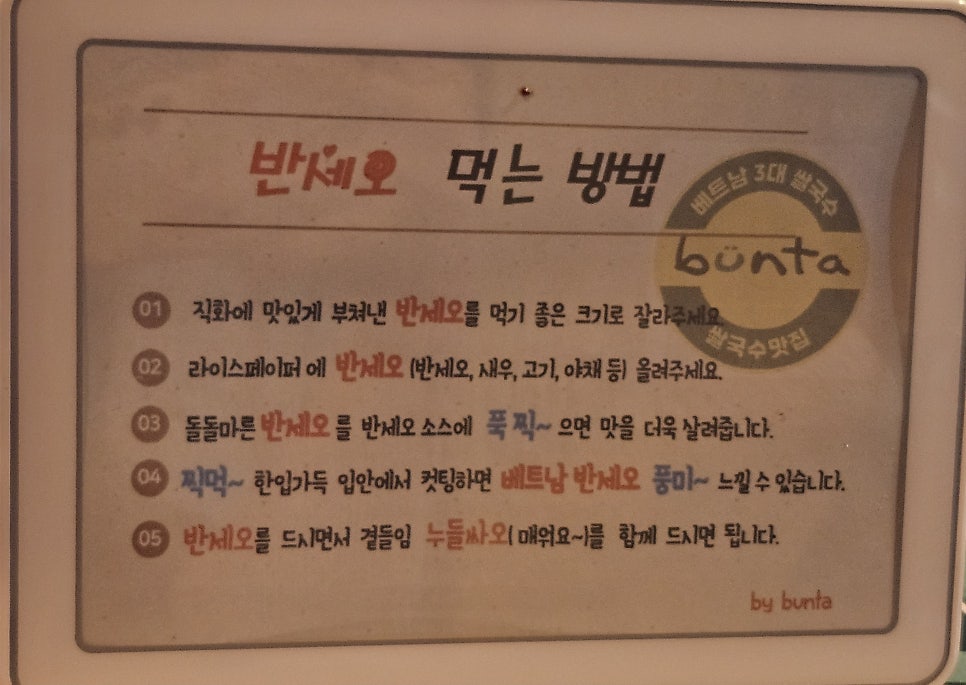 반세오 먹는 방법
베트남 3대 쌀국수
bünta
쌀국수맛집
01 직화에 맛있게 부쳐낸 반세오를 먹기 좋은 크기로 잘라주세요.
02 라이스페이퍼에 반세오 (반세오, 새우, 고기, 야채 등) 올려주세요.
03 돌돌마른 반세오를 반세오 소스에 푹 찍~ 으면 맛을 더욱 살려줍니다.
04 찍먹~ 한입가득 입안에서 컷팅하면 베트남 반세오 풍미~ 느낄 수 있습니다.
05 반세오를 드시면서 곁들임 누들싸오(매워요~)를 함께 드시면 됩니다.
by bunta